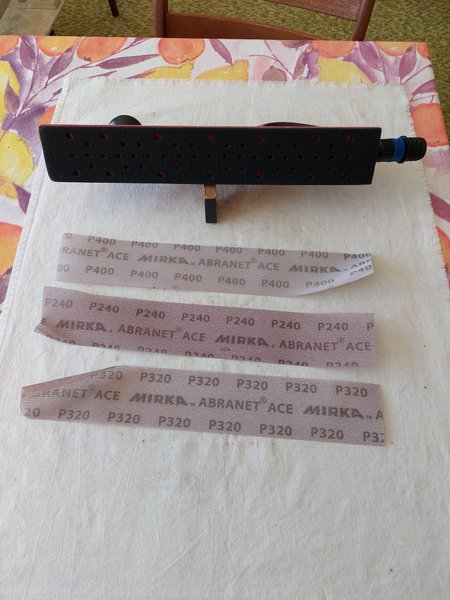 P400 P400 P400 P400
ABRANET® ACE MIRKA ABRANET® ACE MIRKA
P400 P400 P400 P400
P240 P240 P240 P240 P240 P240
MIRKA ABRANET® ACE MIRKA ABRANET® ACE
P240 P240
P320 P320 P320 P320 P320 P320
ABRANET® ACE MIRKA ABRANET® ACE MIRKA
P320 P320 P320 P320 P320 P320